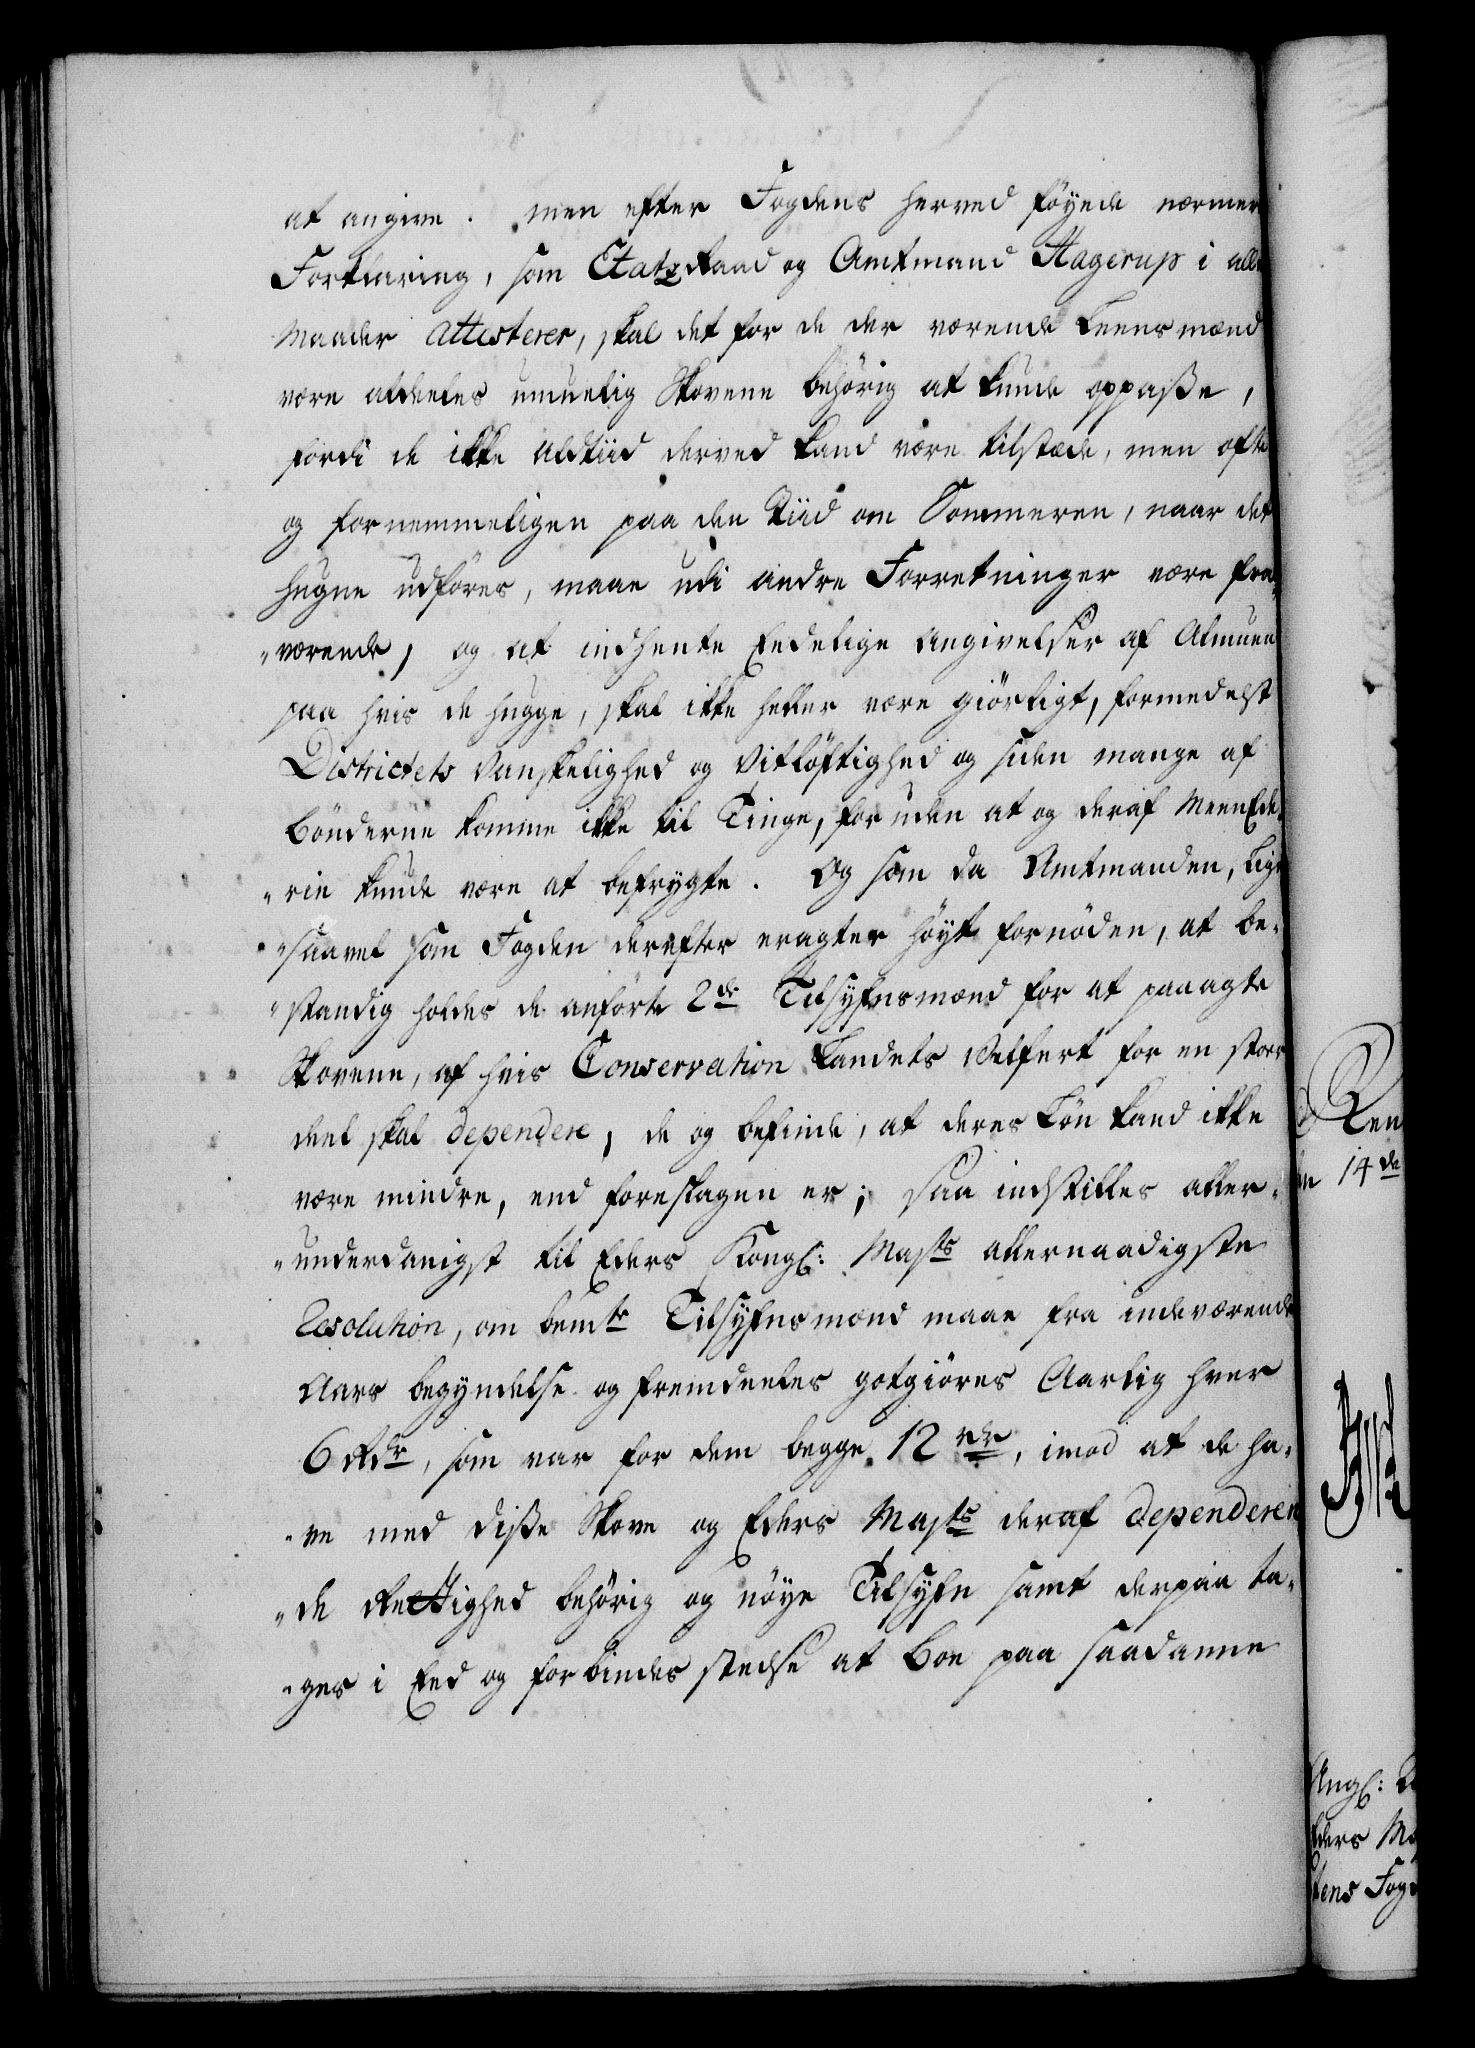 at angive. men efter Fogdens herved föyede nærmer
Forklaring, som EtatzRaad og Amtmand Hagerup i alle
Maader attesterer, skal det for de der værende Leensmænd
være aldeeles umuelig Skovene behörig at kunde oppaße,
fordi de ikke aldtiid derved kand være tilstæde, men ofte
og fornemmeligen paa den Tiid om Sommeren, naar det
hugne udföres, maae udi andre Forretninger være fra-
„værende, og at indhente Eedelige Angivelser af Almuen
paa hvis de hugge, skal ikke heller være giörligt, formedelst
Districtets Vanskelighed og Vitlöftighed og siden mange af
Bönderne komme ikke til Tinge, foruden at og deraf MeenEde-
„rie kunde være at befrygte. Og som da Amtmanden, lige
„saavel som Fogden derefter eragter höyt fornöden, at be-
„standig holdes de anförte 2de Tilsyfnsmænd for at paaagte
Skovene, af hvis Conservation Landets Velfert for en stor
deel skal dependere, de og befinde, at deres Lön kand ikke
være mindre, end foreslagen er; saa indstilles aller-
„underdanigst til Eders Kongl: Mayts allernaadigste
Resolution, om bemte Tilsyfnsmænd maae fra indeværende
Aars begyndelse og fremdeeles gotgiöres Aarlig hver
6 Rdr, som var for dem begge 12 rdr, imod at de ha-
„ve med diße Skove og Eders Mayts deraf dependeren
„de Rettighed behörig og nöye Tilsyfn samt derpaa ta-
„ges i Eed og forbindes stedse at boe paa saadanne
Ren
14de
Angl:
Eders
Fog